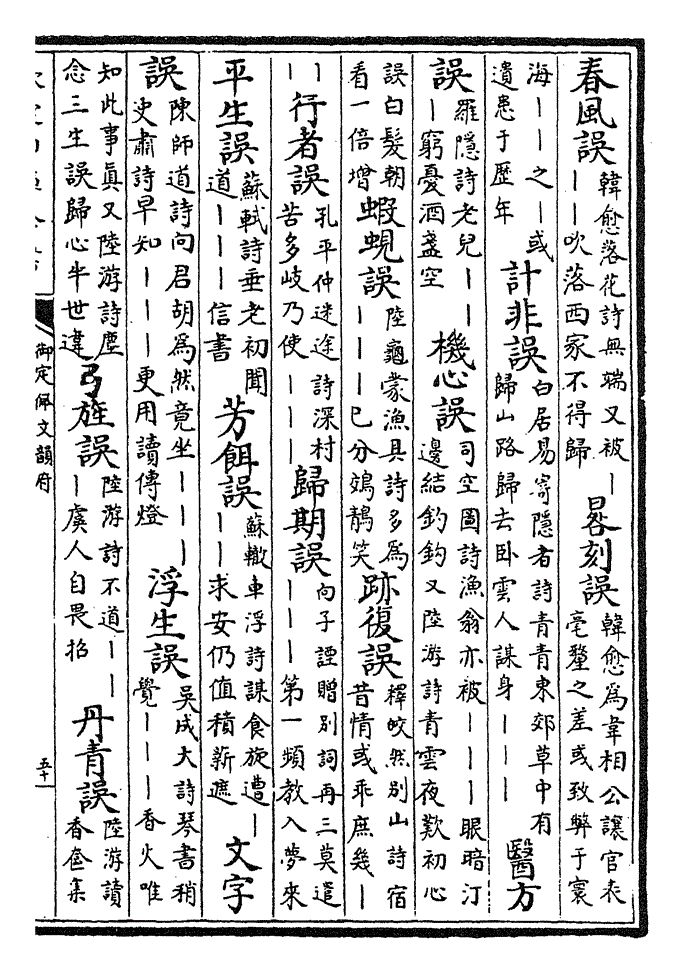 春風誤韓愈落花詩無端又被丨丨丨吹落西家不得歸晷刻誤韓愈為韋相公讓官表毫釐之差或致弊于寰
海丨丨之丨或遺患于歷年計非誤白居易寄隱者詩青青東郊草中有歸山路歸去卧雲人謀身丨丨丨醫方
誤羅隱詩老兒丨丨丨窮憂酒盞空機心誤司空圖詩漁翁亦被丨丨丨眼暗汀邊結釣鉤又陸游詩青雲夜歎初心
誤白髮朝看一倍增蝦蜆誤陸龜蒙漁具詩多為丨丨丨已分鵁鶄笑跡復誤釋皎然別山詩宿昔情或乖庶幾丨
丨丨行者誤孔平仲迷途詩深村苦多岐乃使丨丨丨歸期誤向子諲贈別詞再三莫遣丨丨丨第一頻教入夢來
平生誤蘇軾詩垂老初聞道丨丨丨信書芳餌誤蘇轍車浮詩謀食旋遭丨丨丨求安仍值積薪遮文字
誤陳師道詩向君胡為然竟坐丨丨丨史肅詩早知丨丨丨更用讀傳燈浮生誤吳成大詩琴書稍覺丨丨丨香火唯
知此事真又陸游詩塵念三生誤歸心半世違弓旌誤陸游詩不道丨丨丨虞人自畏招丹青誤陸游讀香奩集
御定佩文韻府
五十